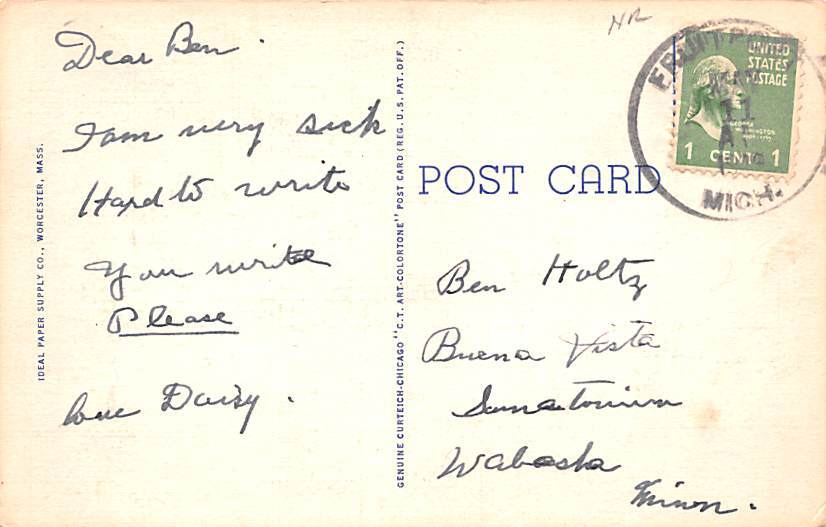 Dear Ben.
I am very sick
Hard to write
You write
Please
love Daisy.
IDEAL PAPER SUPPLY CO., WORCESTER, MASS.
GENUINE CURTEICH-CHICAGO "C.T. ART-COLORTONE" POST CARD (REG. U.S. PAT. OFF.)
POST CARD
NR
UNITED
STATES
POSTAGE
1 CENT 1
11
MICH.
Ben Holtz
Buena Vista
Sanatorium
Wabasha
Minn.